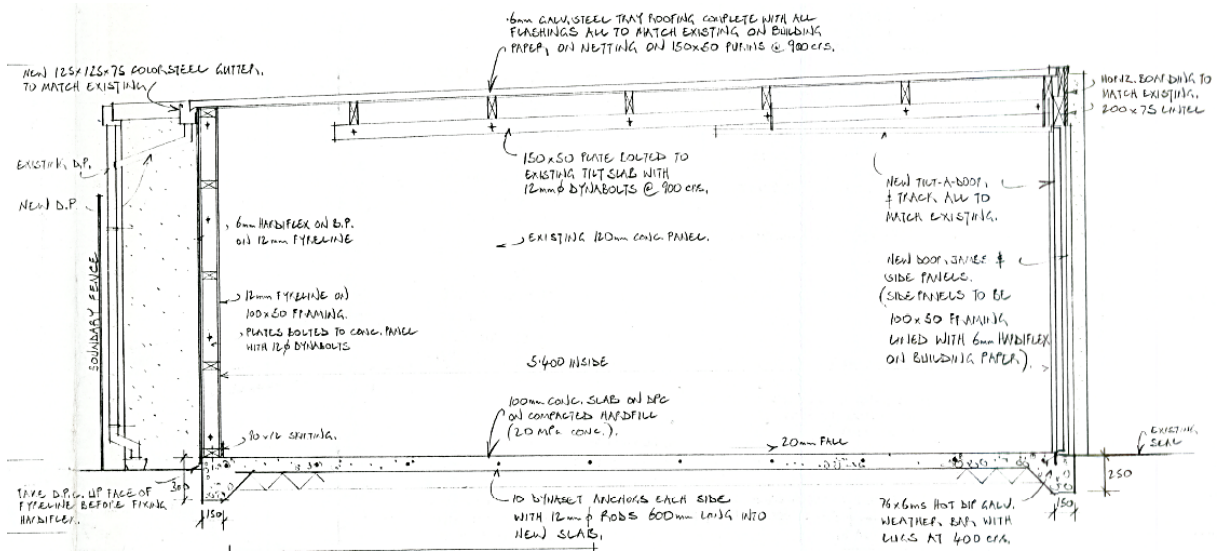 .6mm GALV. STEEL TRAY ROOFING COMPLETE WITH ALL
FLASHINGS ALL TO MATCH EXISTING ON BUILDING
PAPER, ON NETTING ON 150x50 PURLINS @ 900 crs.
NEW 125x125x75 COLORSTEEL GUTTER,
TO MATCH EXISTING
HORIZ. BOARDING TO
MATCH EXISTING.
200x75 LINTEL
EXISTING D.P.
NEW D.P.
BOUNDARY FENCE
150x50 PLATE BOLTED TO
EXISTING TILT SLAB WITH
12mmφ DYNABOLTS @ 900 crs,
NEW TILT-A-DOOR,
& TRACK, ALL TO
MATCH EXISTING.
6mm HARDIFLEX ON B.P.
ON 12mm FYRELINE
EXISTING 120mm CONC. PANEL.
NEW DOOR, JAMBS &
SIDE PANELS.
(SIDE PANELS TO BE
100x50 FRAMING
LINED WITH 6mm HARDIFLEX
ON BUILDING PAPER).
12mm FYRELINE ON
100x50 FRAMING.
PLATES BOLTED TO CONC. PANEL
WITH 12φ DYNABOLTS
5.400 INSIDE
100mm CONC. SLAB ON DPC
ON COMPACTED HARDFILL
(20 MPa CONC.).
SKIRTING.
20mm FALL
EXISTING
SEAL
250
TAKE D.P.C. UP FACE OF
FYRELINE BEFORE FIXING
HARDIFLEX.
150
10 DYNASET ANCHORS EACH SIDE
WITH 12mm φ RODS 600mm LONG INTO
NEW SLAB,
76x6ms HOT DIP GALV.
WEATHER BAR WITH
LUGS AT 400 crs.
150